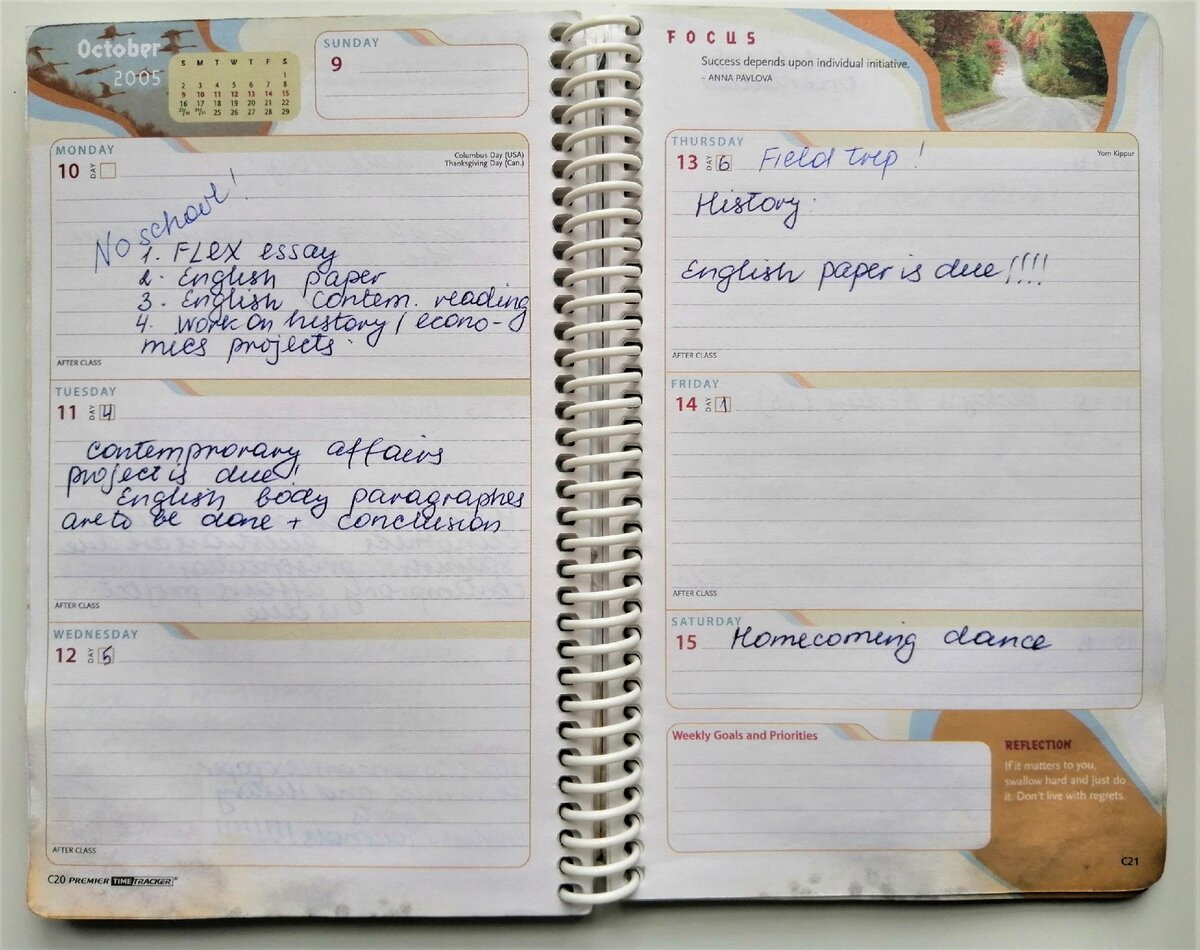 October
2005
S M T W T F S
1
2 3 4 5 6 7 8
9 10 11 12 13 14 15
16 17 18 19 20 21 22
23/30 24/31 25 26 27 28 29
SUNDAY
9
MONDAY
10 DAY
Columbus Day (USA)
Thanksgiving Day (Can.)
No school!
1. FLEX essay
2. English paper
3. English contem. reading
4. work on history / econo-
mics projects.
AFTER CLASS
TUESDAY
11 DAY 4
contemprorary affairs
project is due!
English body paragraphes
are to be done + conclusion
AFTER CLASS
WEDNESDAY
12 DAY 5
AFTER CLASS
C20 PREMIER TIMETRACKER®
FOCUS
Success depends upon individual initiative.
– ANNA PAVLOVA
THURSDAY
13 DAY 6 Field trip !
Yom Kippur
History.
English paper is due!!!!
AFTER CLASS
FRIDAY
14 DAY 1
AFTER CLASS
SATURDAY
15 Homecoming dance
Weekly Goals and Priorities
REFLECTION
If it matters to you,
swallow hard and just do
it. Don't live with regrets.
C21